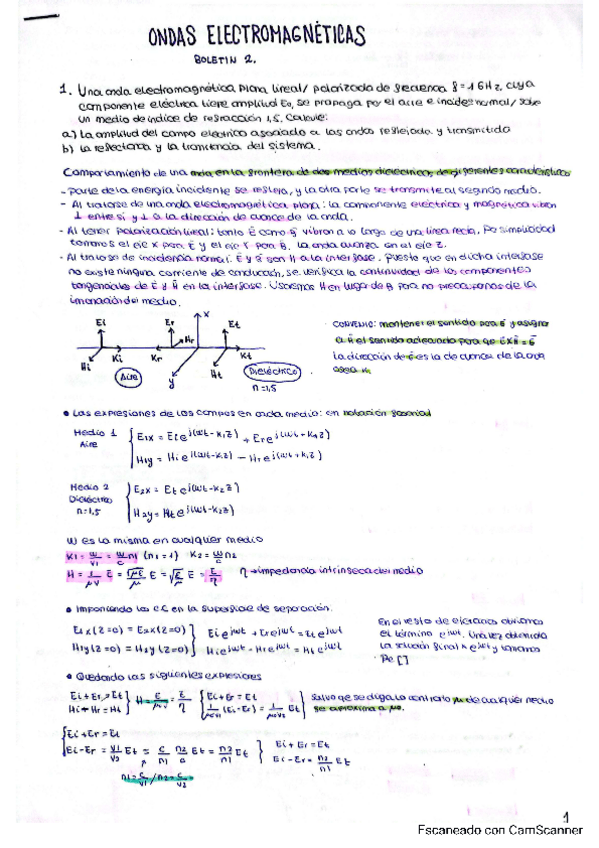 ONDAS ELECTROMAGNÉTICAS
BOLETIN 2.
1. Una onda electromagnética plana lineal/ polarizada de frecuencia f=1GHz, cuya
componente eléctrica tiene amplitud E0, se propaga por el aire e incide normal/ sobre
un medio de índice de refracción 1,5. Calcule:
a) La amplitud del campo eléctrico asociado a las ondas reflejada y transmitida
b) La reflectancia y la transmitancia del sistema.
Comportamiento de una onda en la frontera de dos medios dieléctricos, de diferentes características
- Parte de la energía incidente se refleja, y la otra parte se transmite al segundo medio.
- Al tratarse de una onda electromagnética plana: la componente eléctrica y magnética vibran
⊥ entre sí y ⊥ a la dirección de avance de la onda.
- Al tener polarización lineal: tanto E como B vibran a lo largo de una línea recta, Por simplicidad
tomamos el eje x para E y el eje Y para B. La onda avanza en el eje Z.
- Al tratarse de incidencia normal: E y B son // a la interfase. Puesto que en dicha interfase
no existe ninguna corriente de conducción, se verifica la continuidad de las componentes
tangenciales de E y H en la interfase. Usaremos H en lugar de B para no preocuparnos de la
imanación del medio.
Ei Er x Et
Hr
Ki Kr Kt
Hi y Ht
Aire Dieléctrico
n=1,5
CONVENIO: mantener el sentido para E y asignar
a H el sentido adecuado para que
la dirección de es la de avance de la onda
o sea K.
• Las expresiones de los campos en cada medio: en notación fasorial
Medio 1 E1x = Ei e^j(ωt-k1z) + Er e^j(ωt+k1z)
Aire H1y = Hi e^j(ωt-k1z) - Hr e^j(ωt+k1z)
Medio 2 E2x = Et e^j(ωt-k2z)
Dieléctrico
n=1,5 H2y = Ht e^j(ωt-k2z)
W es la misma en cualquier medio
K1 = w/v1 = w/c n1 (n1=1) K2 = w/c n2
H = 1/μv E = √με/μ E = √ε/μ E = E/η η → impedancia intrínseca del medio
• Imponiendo las CC en la superficie de separación:
E1x(z=0) = E2x(z=0) Ei e^jωt + Er e^jωt = Et e^jωt
H1y(z=0) = H2y(z=0) Hi e^jωt - Hr e^jωt = Ht e^jωt
En el resto de ejercicios obviamos
el término e^jωt. Una vez obtenida
la solución final x e^jωt y tomamos
Re[]
• Quedando las siguientes expresiones
Ei+Er=Et H=E/μv=E/η Ei+Er=Et
Hi-Hr=Ht 1/μv1 (Ei-Er) = 1/μv2 Et
Salvo que se diga lo contrario μ de cualquier medio
se aproxima a μ0.
Ei+Er=Et
Ei-Er = v1/v2 Et = c/n1 n2/c Et = n2/n1 Et
n1=c/v1 / n2=c/v2
Ei+Er=Et
Ei-Er = n2/n1 Et
1
Escaneado con CamScanner